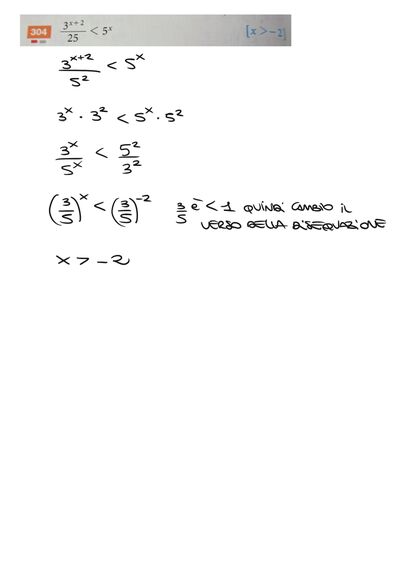 304 3^(x+2)/25 < 5^x [x > −2]
3^(x+2)/5² < 5^x
3^x · 3² < 5^x · 5²
3^x/5^x < 5²/3²
(3/5)^x < (3/5)^−2 3/5 è < 1 QUINDI CAMBIO IL
VERSO DELLA DISEQUAZIONE
x > −2